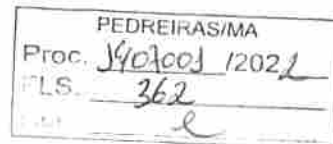 PEDREIRAS/MA
Proc. 1407001 /2021
FLS. 362